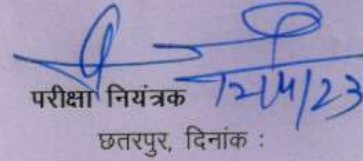 परीक्षा नियंत्रक 12/4/23
छतरपुर, दिनांक :